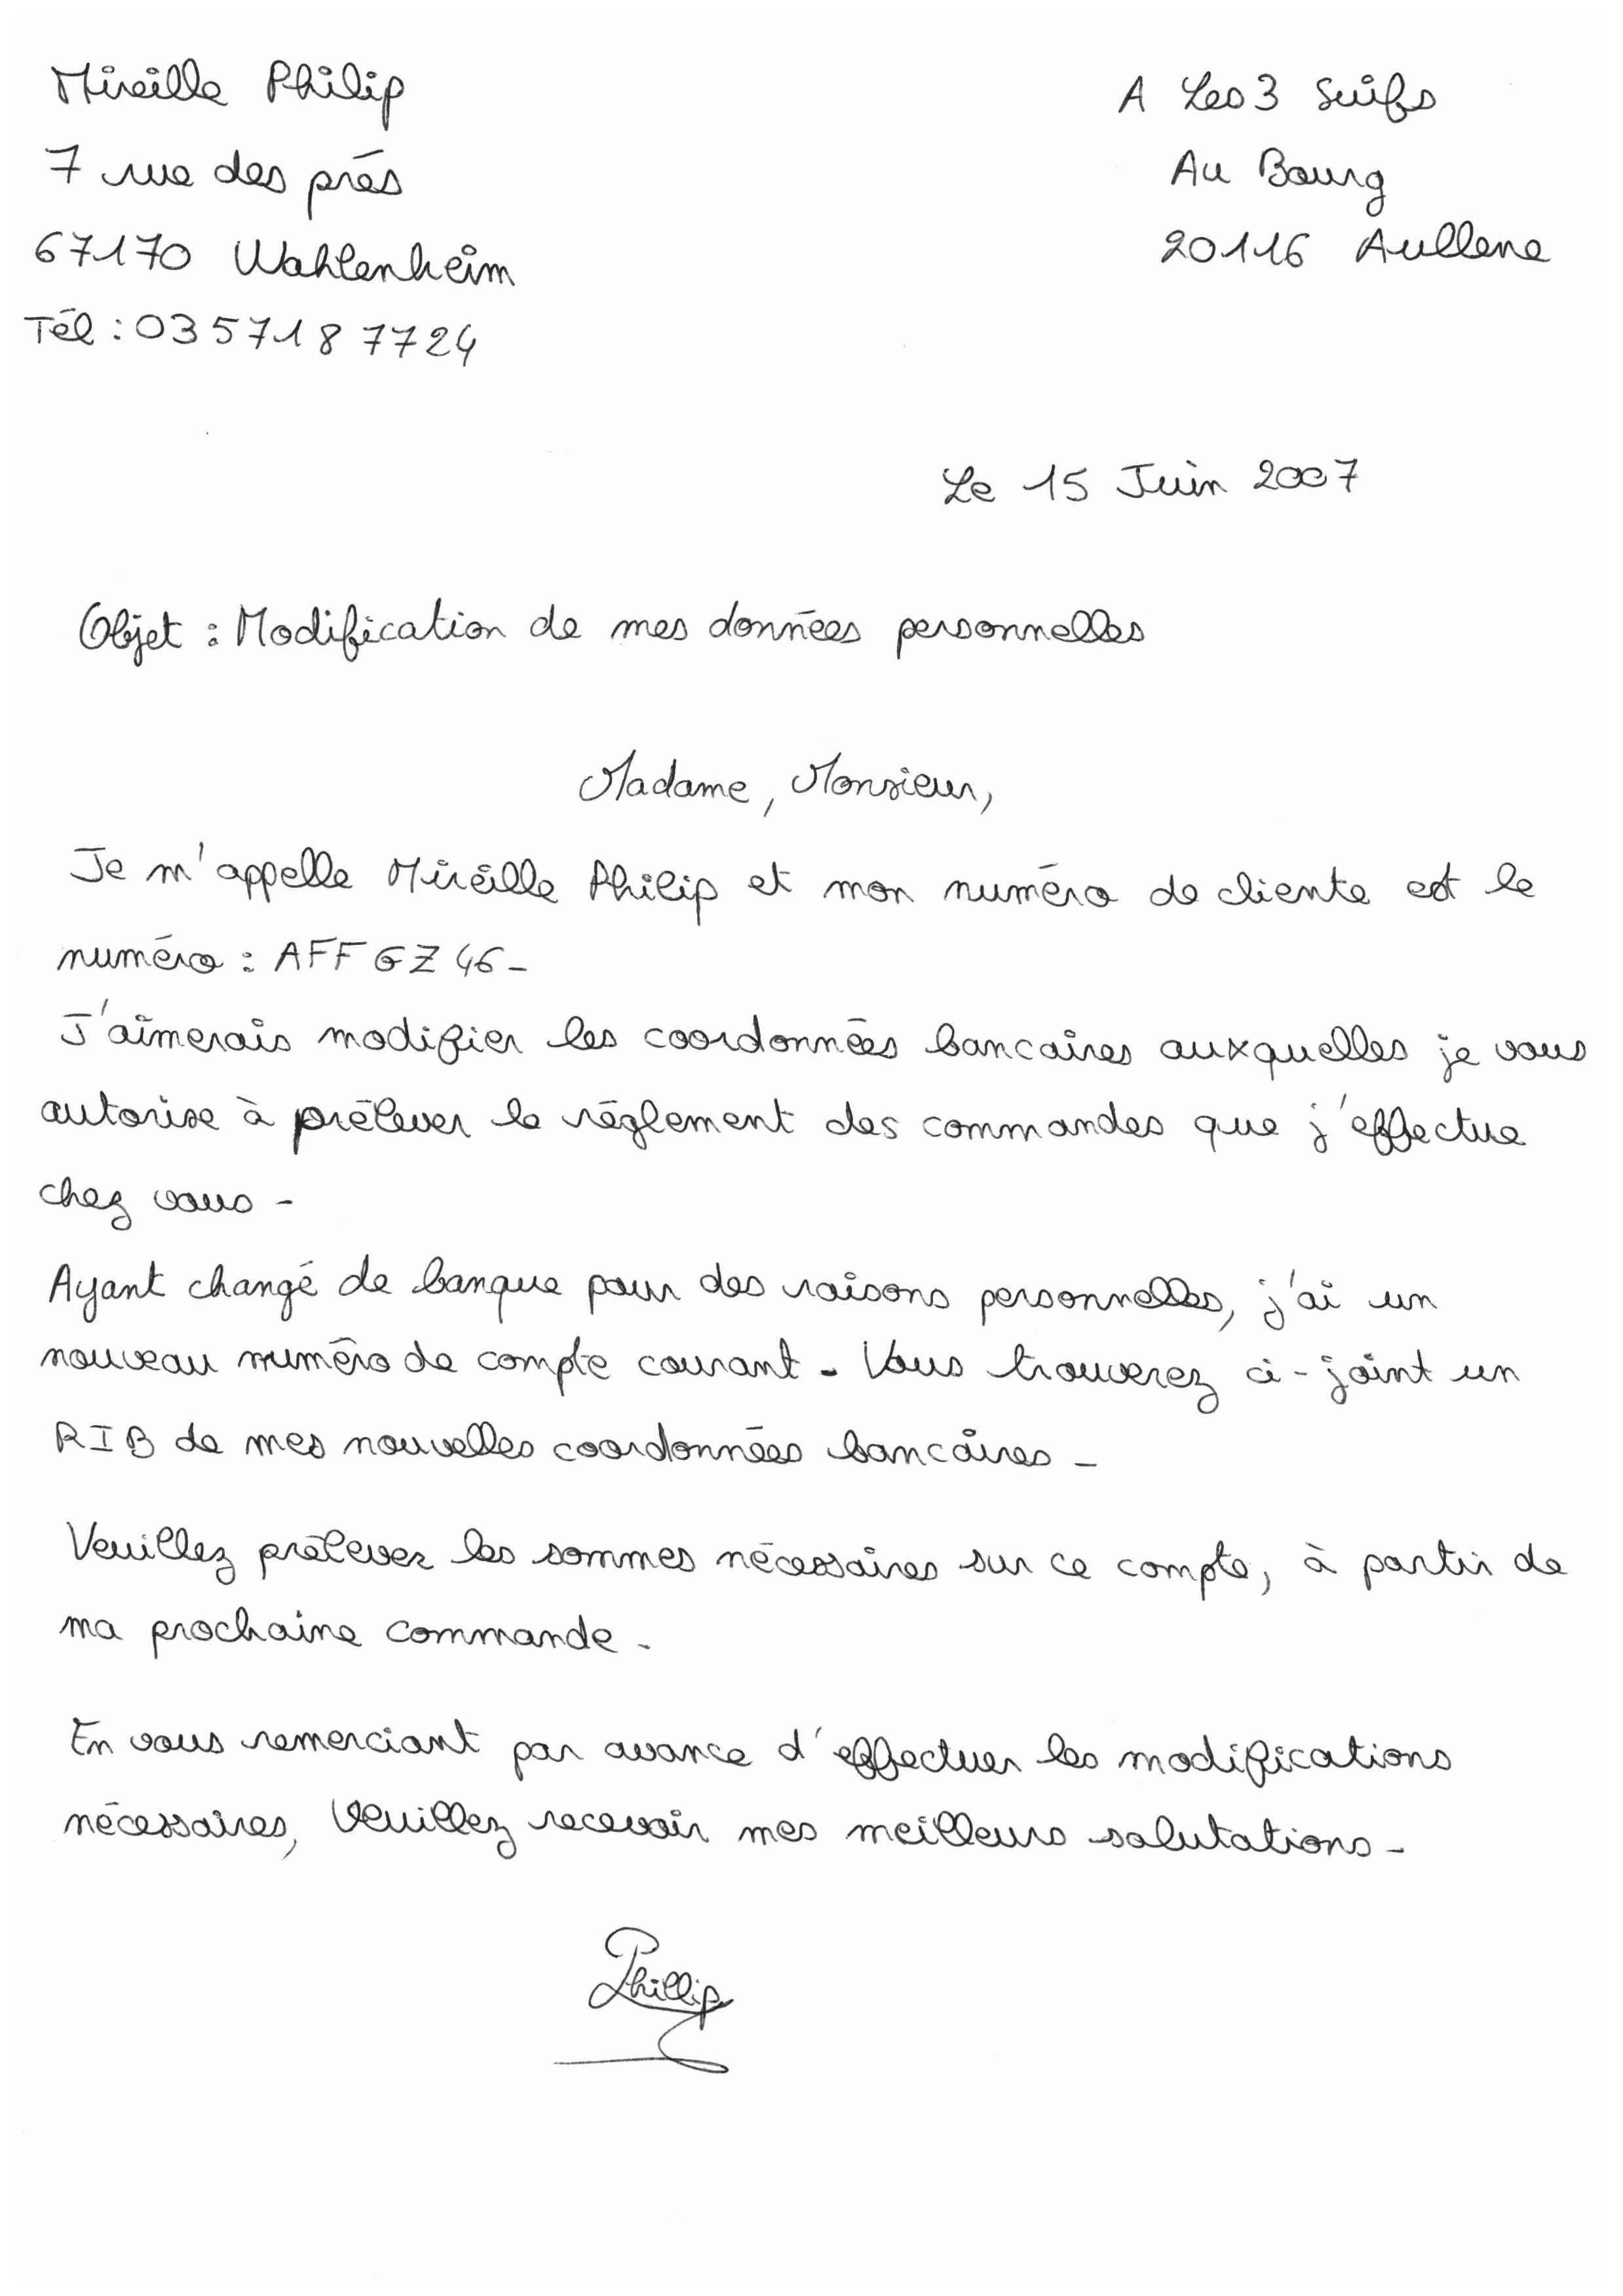 Mireille Philip
7 rue des prés
67170 Wahlenheim
Tél : 03 57 18 77 24
A Les 3 Suifs
Au Bourg
20116 Aullene
Le 15 Juin 2007
Objet : Modification de mes données personnelles
Madame, Monsieur,
Je m'appelle Mireille Philip et mon numéro de cliente est le
numéro : AFFGZ46-
J'aimerais modifier les coordonnées bancaires auxquelles je vous
autorise à prélever le réglement des commandes que j'effectue
chez vous -
Ayant changé de banque pour des raisons personnelles, j'ai un
nouveau numéro de compte courant - Vous trouverez ci-joint un
RIB de mes nouvelles coordonnées bancaires -
Veuillez prélever les sommes nécessaires sur ce compte, à partir de
ma prochaine commande -
En vous remerciant par avance d'effectuer les modifications
nécessaires, Veuillez recevoir mes meilleurs salutations -
Phillip